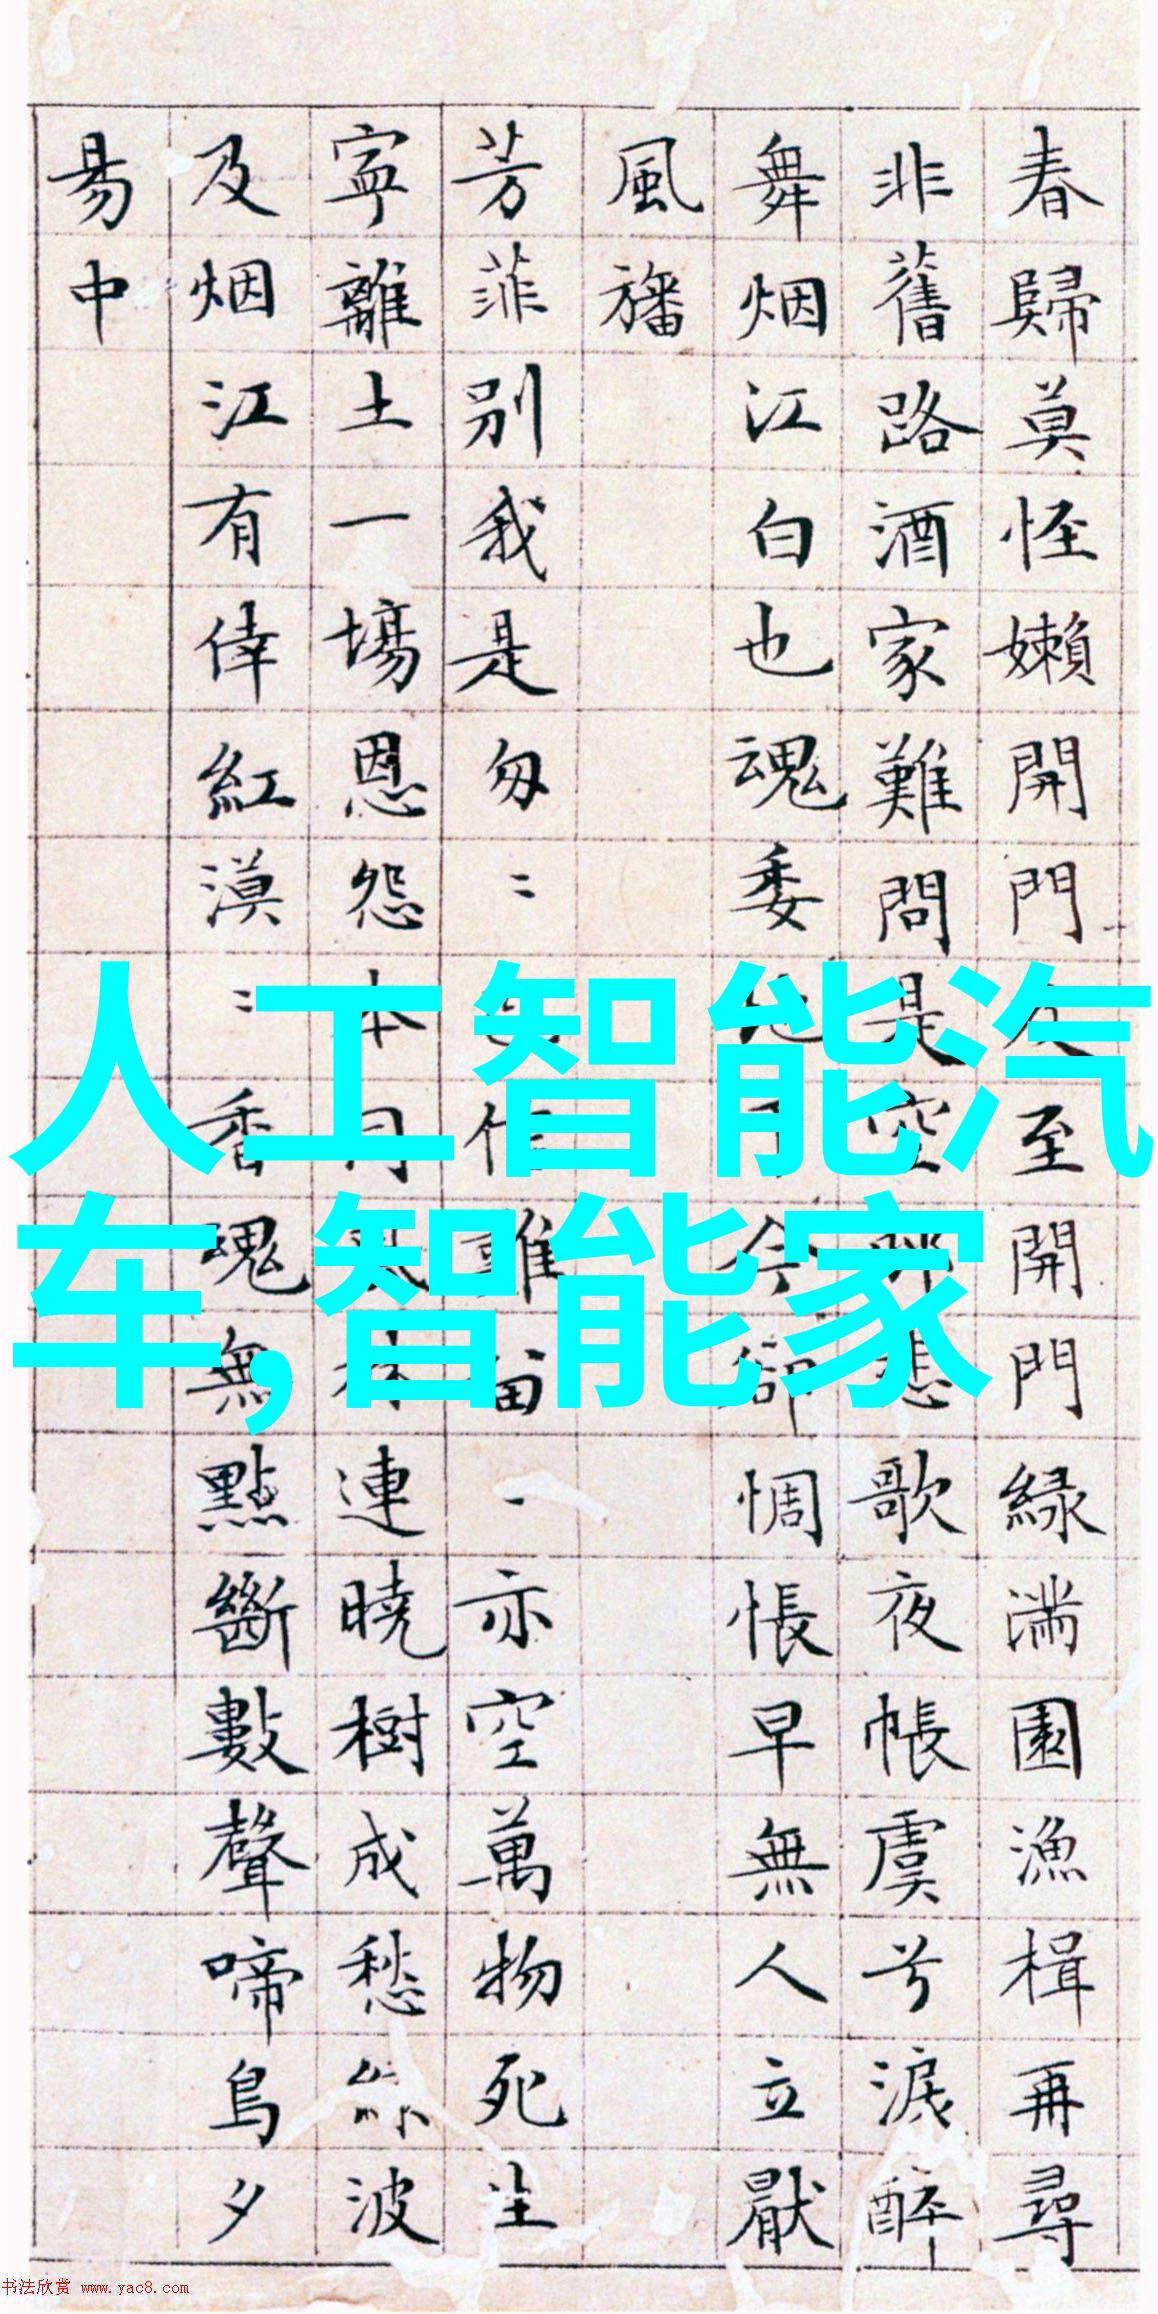 春歸莫怪嬾開門及至開門緑満園漁楫再尋
非舊路酒家難問是空邨悲歌夜帳虞兮淚醉
舞烟江白也魂委地于今卻惆悵早無人立厭
風旛
芳菲別我是匆〻已作難留一亦空萬物死生
寧離土一場恩怨本同風株連曉樹成愁綠波
及烟江有倖紅漠〻香魂無點斷數聲啼鳥夕
昜中
人工智能汽
车,智能家
书法欣赏 www.yac8.com